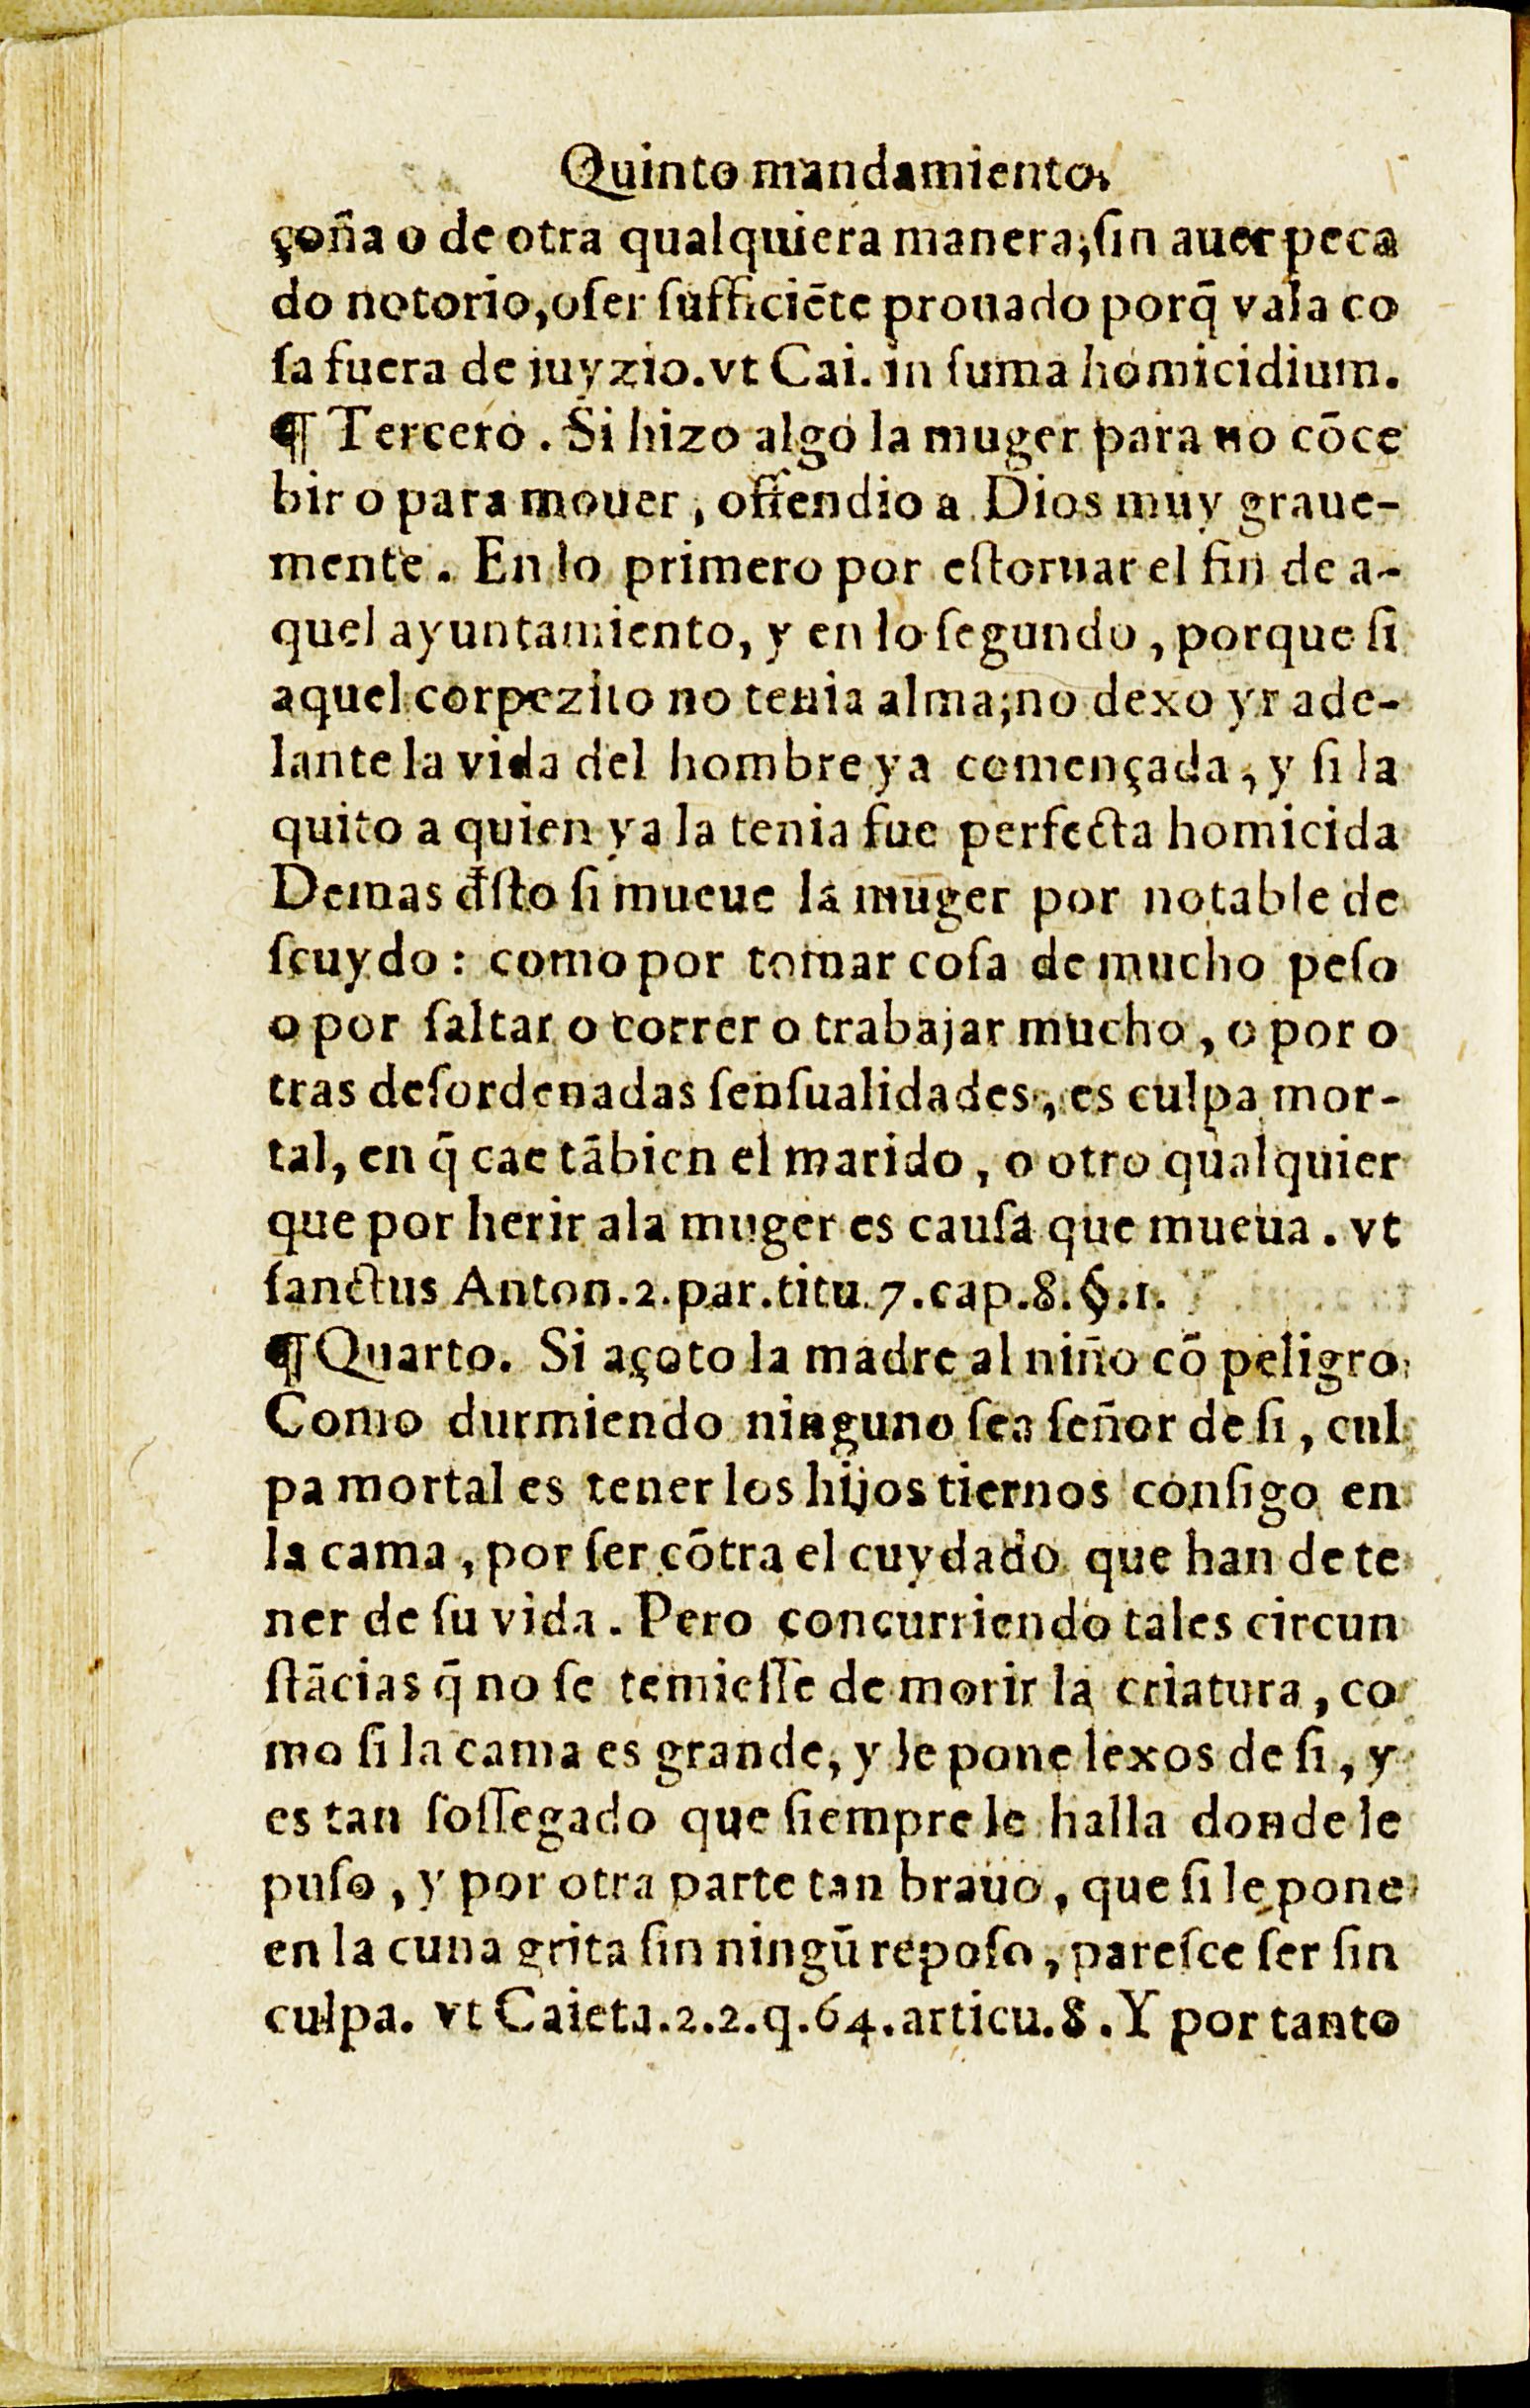 Quinto mandamiento.
çoña o de otra qualquiera manera, ſin auer peca
do notorio, oſer ſufficiẽte prouado porq̃ vala co
ſa fuera de juyzio. vt Cai. in ſuma homicidium.
¶ Tercero. Si hizo algo la muger para no cõce
bir o para mouer, offendio a Dios muy graue-
mente. En lo primero por eſtoruar el fin de a-
quel ayuntamiento, y en lo ſegundo, porque ſi
aquel corpezito no tenia alma; no dexo yr ade-
lante la vida del hombre ya començada, y ſi la
quito a quien ya la tenia fue perfecta homicida
Demas đſto ſi mueue la muger por notable de
ſcuydo: como por tomar coſa de mucho peſo
o por ſaltar o correr o trabajar mucho, o por o
tras deſordenadas ſenſualidades, es culpa mor-
tal, en q̃ cae tãbien el marido, o otro qualquier
que por herir ala muger es cauſa que mueua. vt
ſanctus Anton. 2. par. titu. 7. cap. 8. §. 1.
¶ Quarto. Si açoto la madre al niño cõ peligro
Como durmiendo ninguno ſea ſeñor de ſi, cul
pa mortal es tener los hijos tiernos conſigo en
la cama, por ſer cõtra el cuydado que han de te
ner de ſu vida. Pero concurriendo tales circun
ſtãcias q̃ no ſe temieſſe de morir la criatura, co
mo ſi la cama es grande, y le pone lexos de ſi, y
es tan ſoſſegado que ſiempre le halla donde le
puſo, y por otra parte tan brauo, que ſi le pone
en la cuna grita ſin ningũ repoſo, pareſce ſer ſin
culpa. vt Caieta. 2. 2. q. 64. articu. 8. Y por tanto